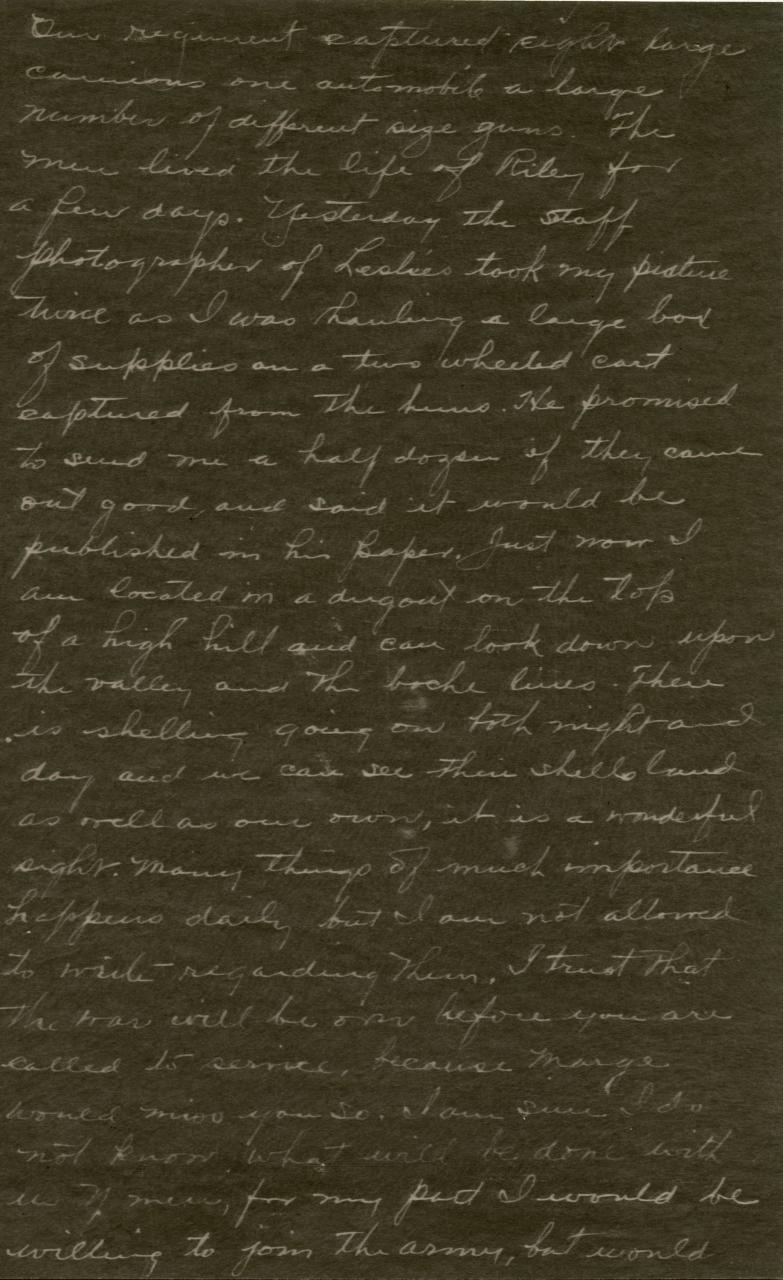 Our regiment captured eight large
camions one automobile a large
number of different size guns. The
men lived the life of Riley for
a few days. Yesterday the staff
photographer of Leslies took my picture
twice as I was hauling a large box
of supplies on a two wheeled cart
captured from the huns. He promised
to send me a half dozen if they came
out good, and said it would be
published in his paper. Just now I
am located in a dugout on the top
of a high hill and can look down upon
the valley and the boche lines. There
is shelling going on both night and
day and we can see their shells land
as well as our own, it is a wonderful
sight. Many things of much importance
happens daily but I am not allowed
to write regarding them. I trust that
the war will be over before you are
called to service, because Marge
would miss you so. I am sure I do
not know what will be done with
us Y men, for my part I would be
willing to join the army, but would